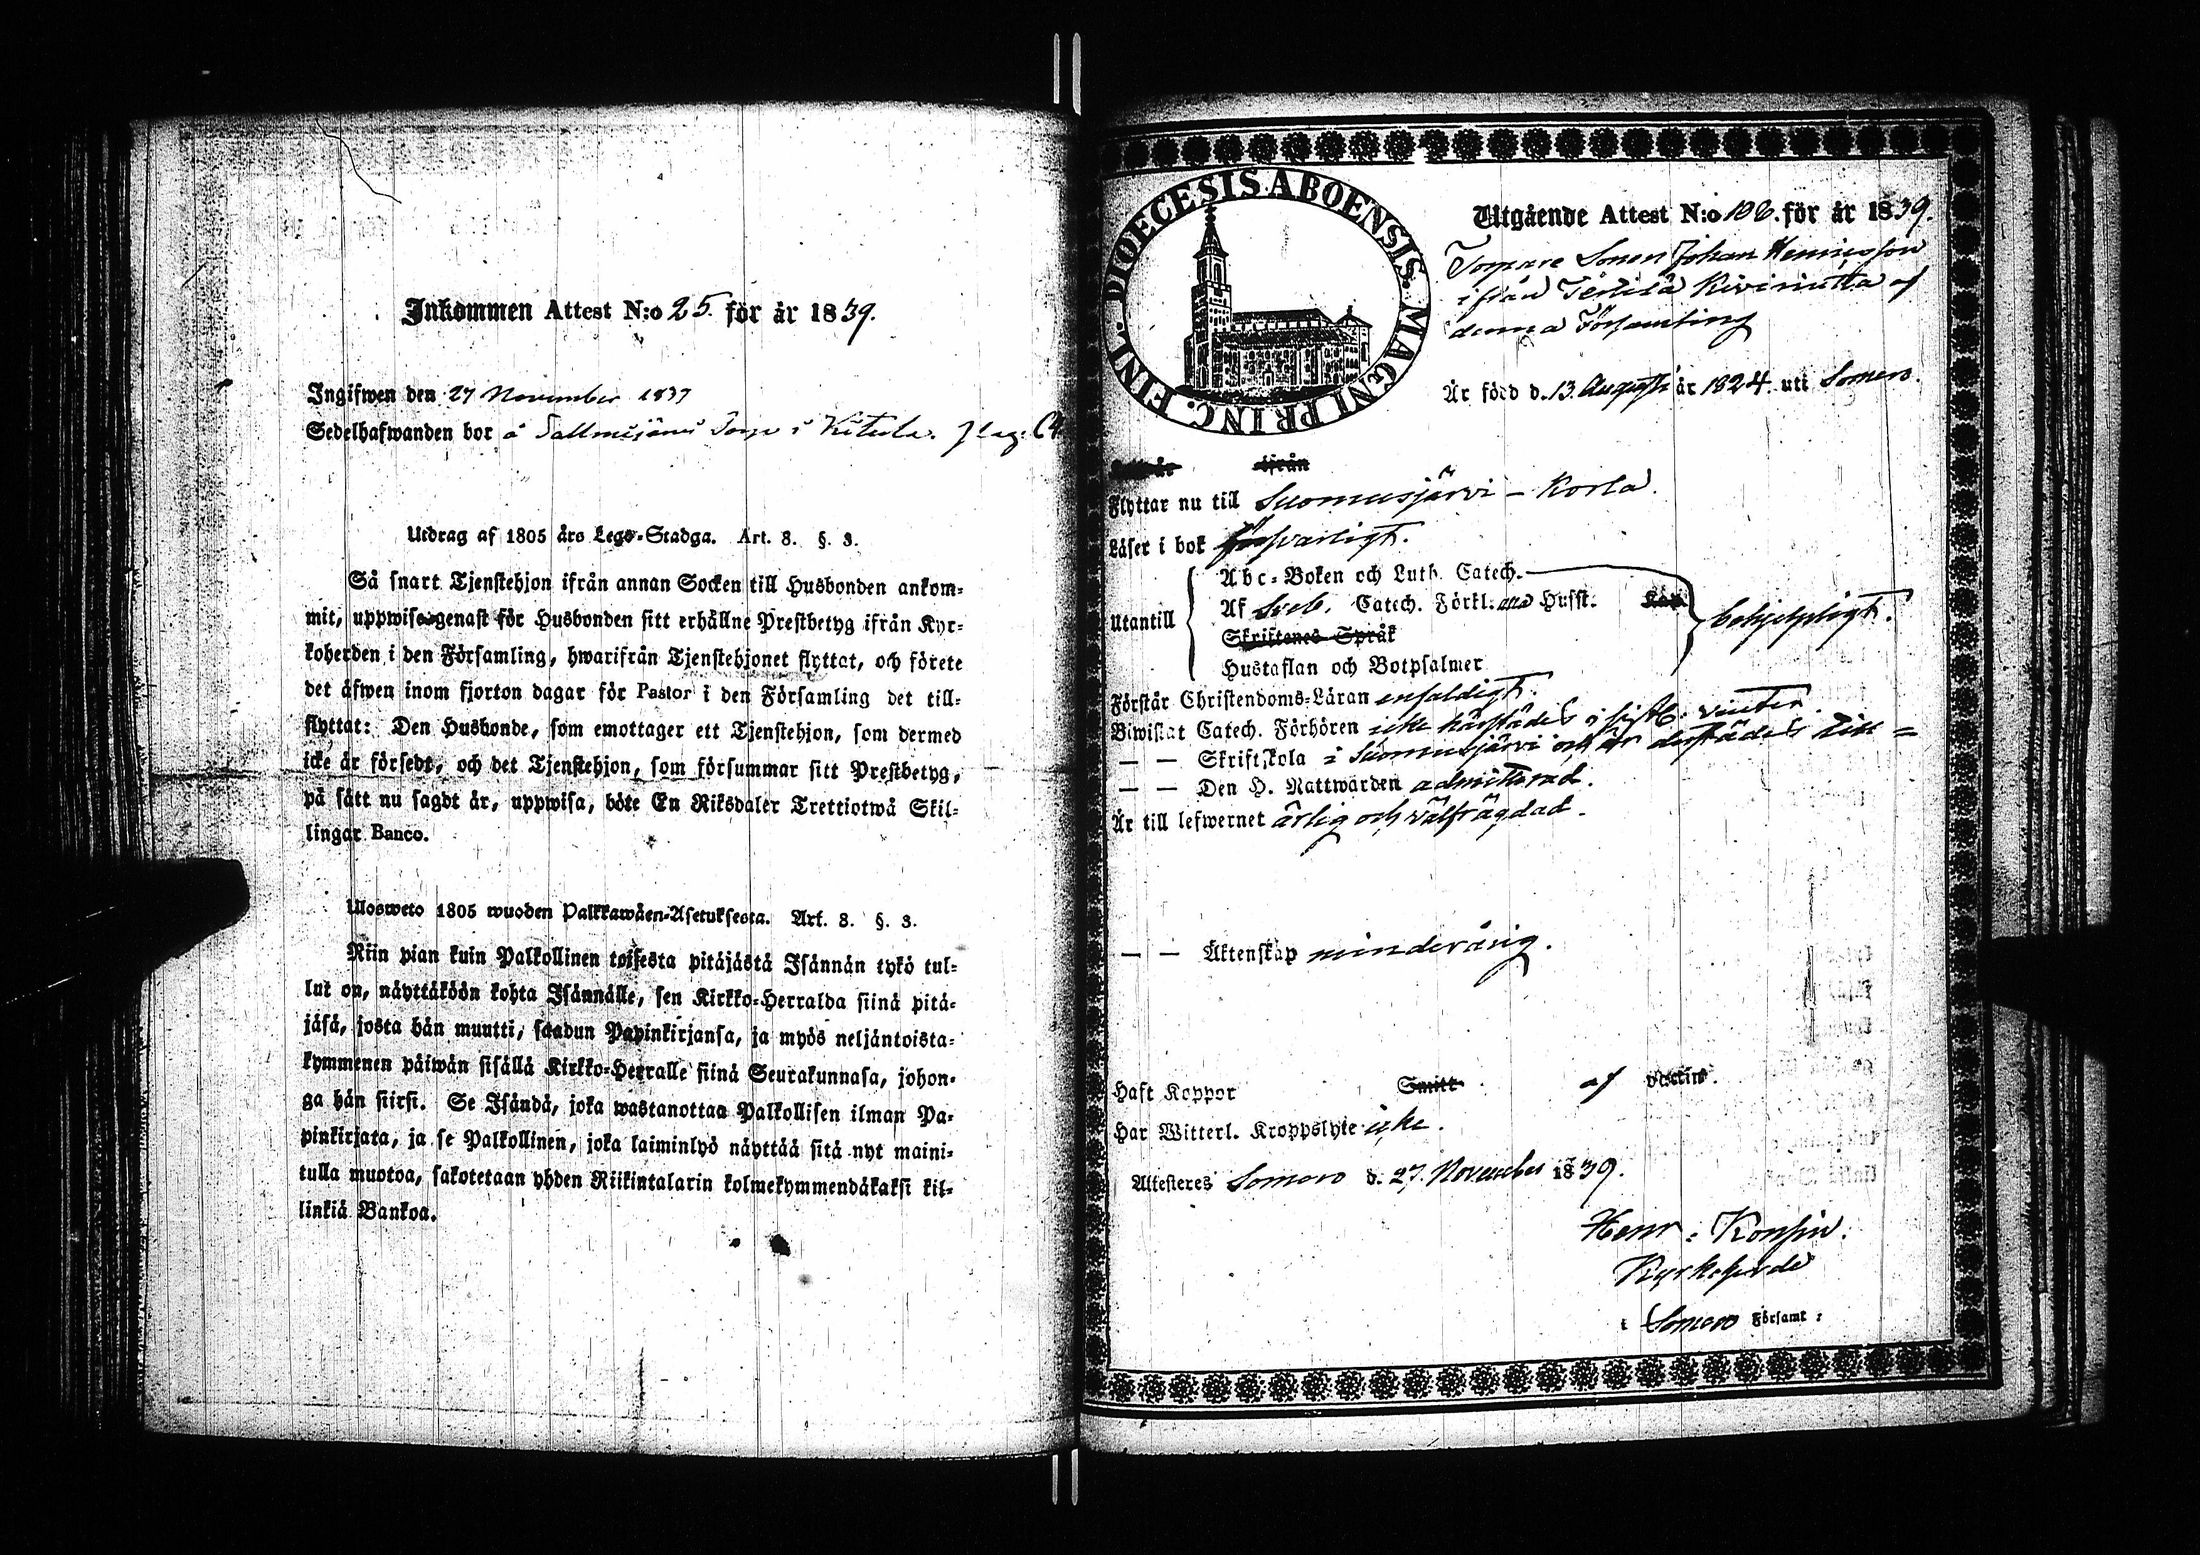 Inkommen Attest N:o 25. för år 1839.
Ingifwen den 27 November 1839
Sedelhafwanden bor å Torp i Kitula. pag: 64
Utdrag af 1805 års Lego-Stadga. Art. 8. §. 3.
Så snart Tjenstehjon ifrån annan Socken till Husbonden ankom-
mit, uppwise genast för Husbonden sitt erhållne Prestbetyg ifrån Kyr-
koherden i den Församling, hwarifrån Tjenstehjonet flyttat, och förete
det äfwen inom fjorton dagar för Pastor i den Församling det till-
flyttat: Den Husbonde, som emottager ett Tjenstehjon, som dermed
icke är försedt, och det Tjenstehjon, som försummar sitt Prestbetyg,
på sätt nu sagdt är, uppwisa, böte En Riksdaler Trettiotwå Skil-
lingar Banco.
Ulosweto 1805 wuoden Palkkawäen-Asetuksesta. Art. 8. §. 3.
Niin pian kuin Palkollinen toisesta pitäjästä Isännän tykö tul-
lut on, näyttäköön kohta Isännälle, sen Kirkko-Herralda siinä pitä-
jäsä, josta hän muutti, saadun Papinkirjansa, ja myös neljäntoista-
kymmenen päiwän sisällä Kirkko-Herralle siinä Seurakunnasa, johon-
ga hän siirsi. Se Isändä, joka wastanottaa Palkollisen ilman Pa-
pinkirjata, ja se Palkollinen, joka laiminlyö näyttää sitä nyt maini-
tulla muotoa, sakotetaan yhden Riikintalarin kolmekymmendäkaksi kil-
linkiä Bankoa.
DIOECESIS ABOENSIS. MAGNI PRINC. FINL.
Utgående Attest N:o 106. för år 1839.
Torpare Sonen Johan Henricsson
ifrån Terttilä Kivinitta af
denna Församling
Är född d. 13. Augusti år 1824 uti Somero.
ifrån
Flyttar nu till Suomusjärvi – Korla.
Läser i bok försvarligt.
Utantill
Abc-Boken och Luth. Catech.
Af Sveb. Catech. Förkl. Husst.
behjelpligt.
Skriftenes Språk
Hustaflan och Botpsalmer
Förstår Christendoms-Läran enfaldigt.
Biwistat Catech. Förhören icke härstädes sistl. vinter.
— — Skriftskola i Suomusjärvi och är derstädes till =
— — Den H. Nattwarden admitterad.
Är till lefwernet ärlig och välfrägdad.
— — Äktenskap minderårig.
Haft Koppor Smitt af Vaccin.
Har Witterl. Kroppslyte icke.
Attesteres Somero d. 27. November 1839.
Henr: Konsin.
Kyrkoherde
i Somero Församl: